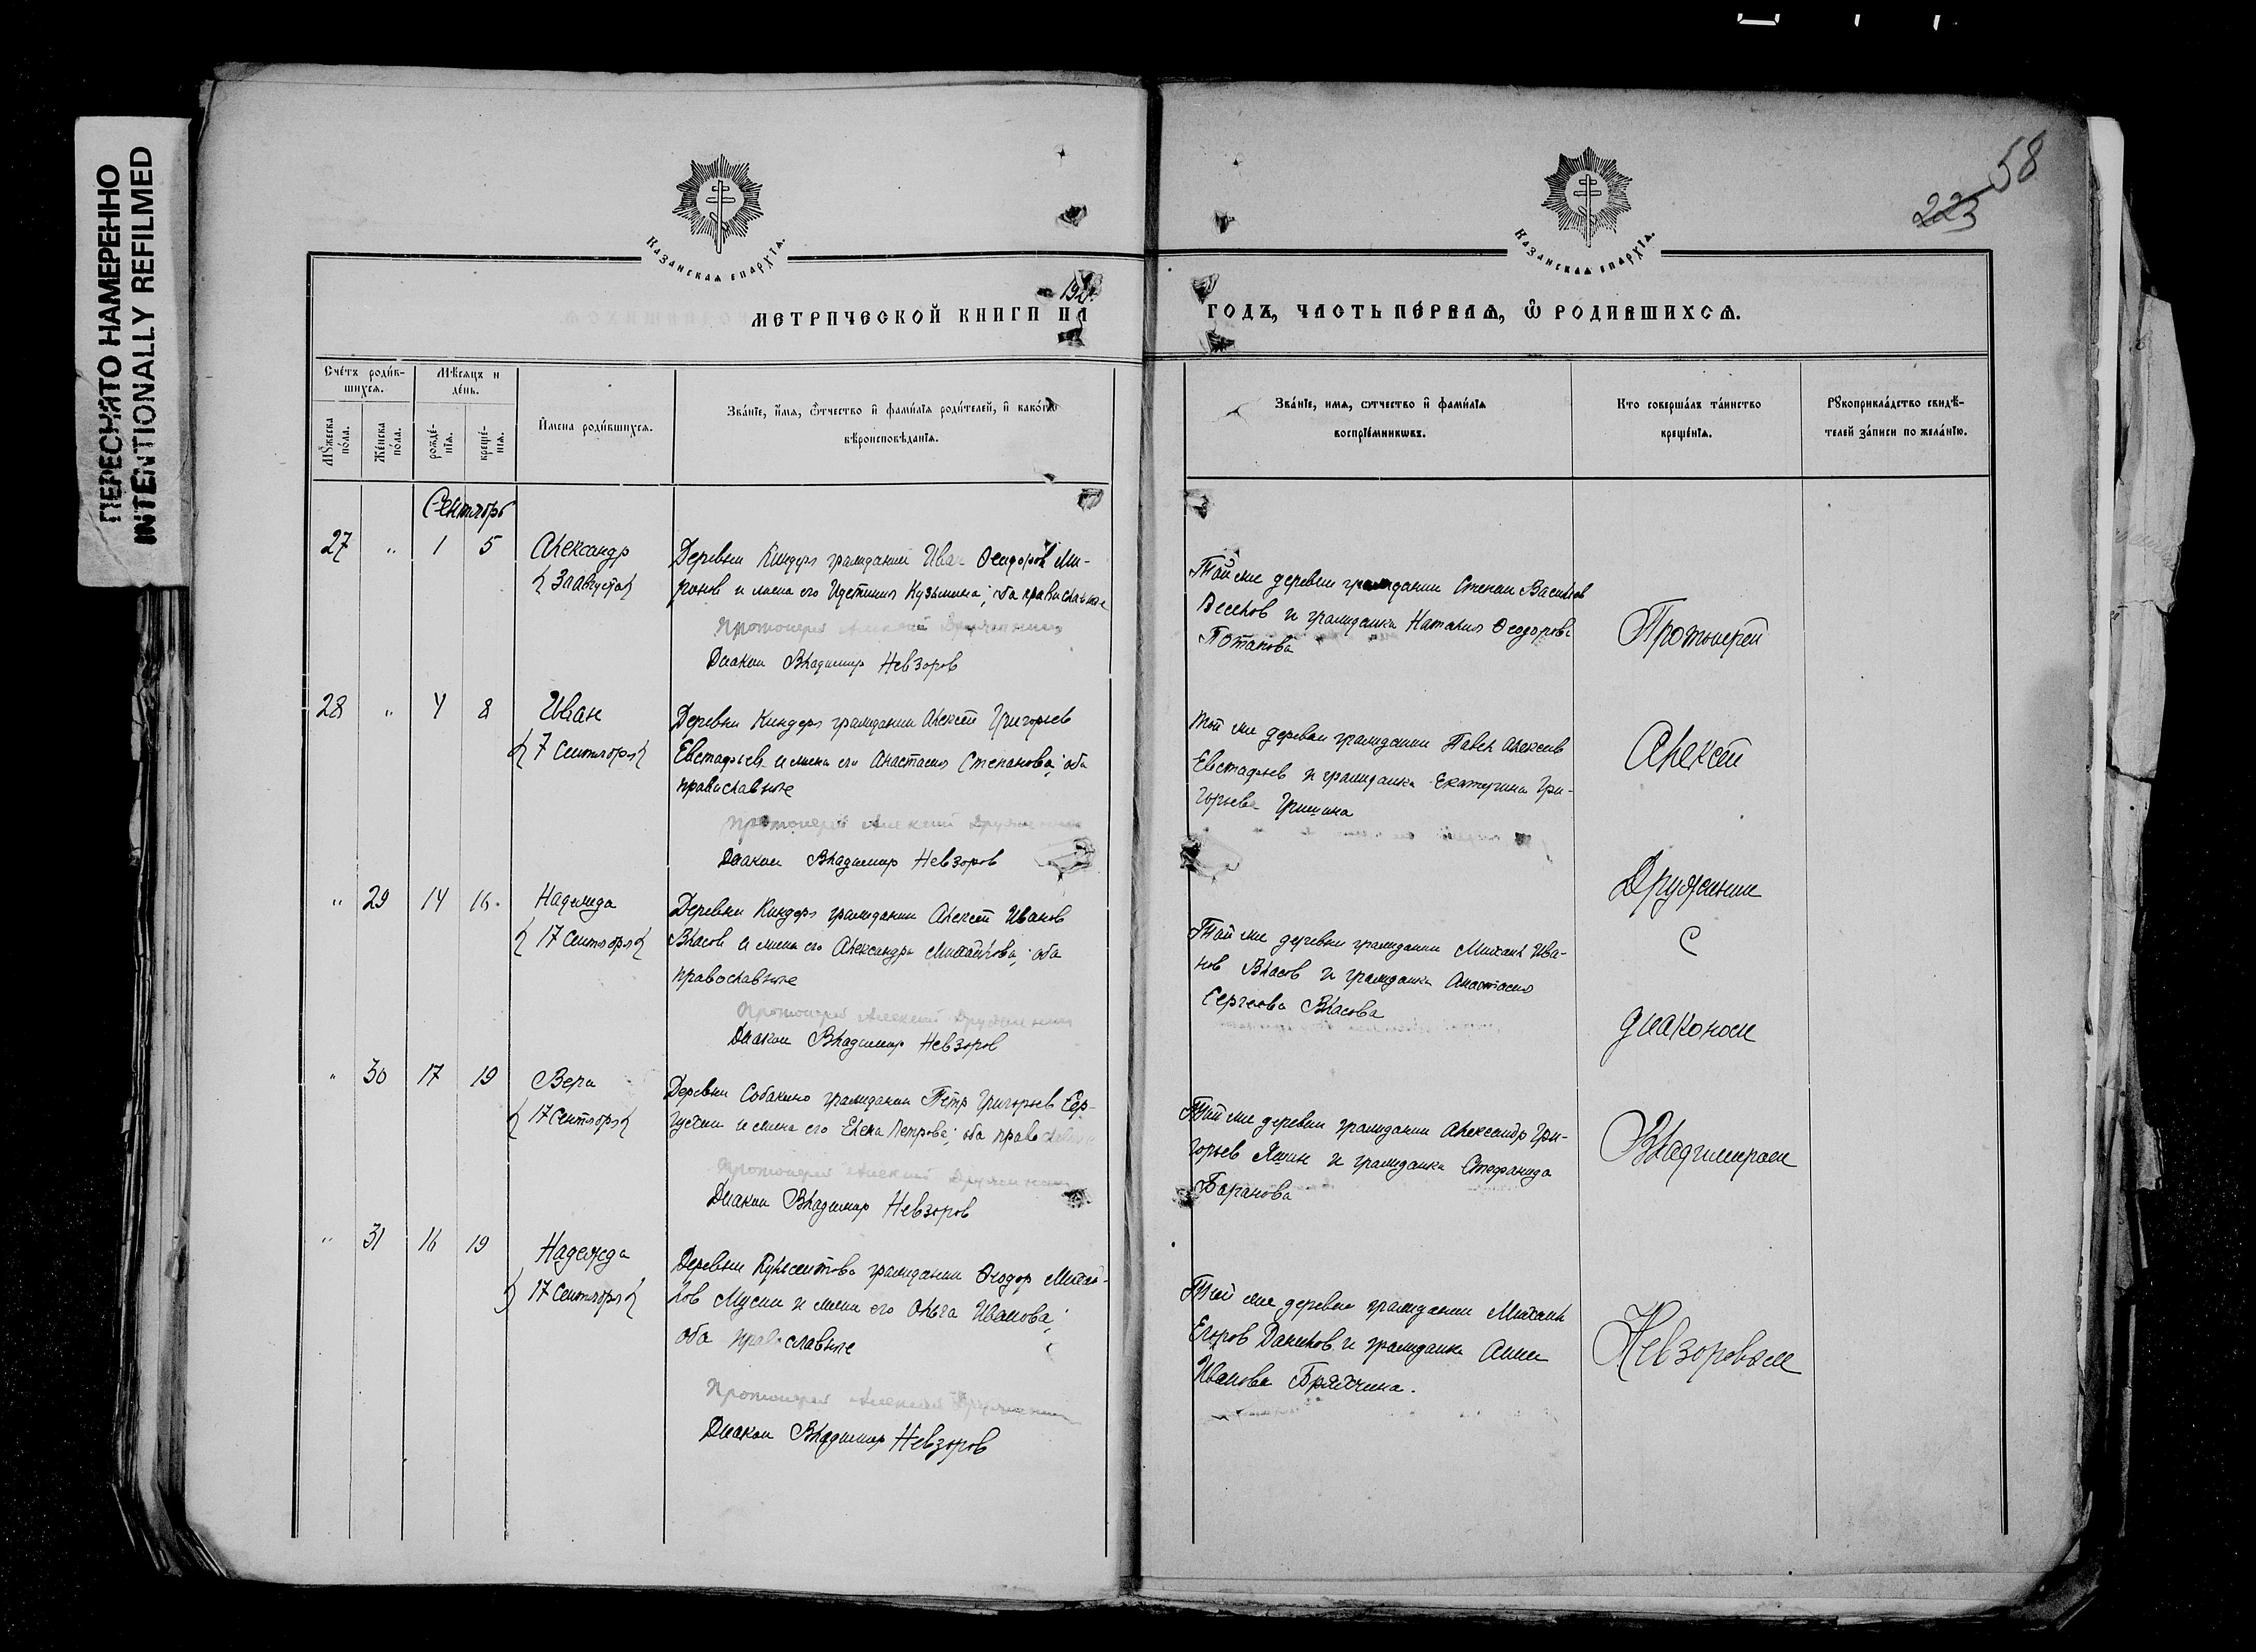 ПЕРЕСНЯТО НАМЕРЕННО
INTENTIONALLY REFILMED
58
223
Казанская епархїя.
Казанская епархїя.
МЕТРИЧЕСКОЙ КНИГИ НА
ГОДЪ, ЧАСТЬ ПЕ́РВАѦ, Ѡ РОДИВШИХСѦ.
Сче́тъ роди́в-
шихсѧ.
Мѣ́сѧцъ и
де́нь.
Мꙋ́жеска
по́ла.
Же́нска
по́ла.
рожде́-
нїѧ.
креще́-
нїѧ.
И́мена роди́вшихсѧ.
Зва́нїе, и́мѧ, ѻ́тчество и҆ фами́лїѧ роди́телей, и҆ како́гѡ
вѣроисповѣ́данїѧ.
Зва́нїе, имѧ, ѻтчество и҆ фами́лїѧ
воспрїе́мникѡвъ.
Кто соверша́лъ та́инство
креще́нїѧ.
Рꙋкоприкла́дство свидѣ́-
телей за́писи по жела́нїю.
Сентябрь
27 " 1 5 Александр
{ 30 августа }
Деревни Киндеры гражданин Иван Феодоров Ми-
ронов и жена его Иустиния Кузьмина; оба православные
Протоиерей Алексий Дружинин
Диакон Владимир Невзоров
Той же деревни гражданин Степан Васильев
и гражданка Наталия Феодорова
Потапова
28 " 4 8 Иван
{ 7 Сентября }
Деревни Киндеры гражданин Алексей Григорьев
Евстафьев и жена его Анастасия Степанова; оба
православные
Протоиерей Алексий Дружинин
Диакон Владимир Невзоров
Той же деревни гражданин Павел Алексеев
Евстафьев и гражданка Екатерина Гри-
горьева Гришина
" 29 14 16 Надежда
{ 17 Сентября }
Деревни Киндеры гражданин Алексей Иванов
Власов и жена его Александра Михайлова; оба
православные
Протоиерей Алексий Дружинин
Диакон Владимир Невзоров
Той же деревни гражданин Михаил Ива-
нов Власов и гражданка Анастасия
Сергеева Власова
" 30 17 19 Вера
{ 17 Сентября }
Деревни Собакино гражданин Петр Григорьев Сер-
и жена его Елена Петрова; оба православные
Протоиерей Алексий Дружинин
Диакон Владимир Невзоров
Той же деревни гражданин Александр Гри-
горьев Яшин и гражданка Стефанида
Баранова
" 31 16 19 Надежда
{ 17 Сентября }
Деревни гражданин Феодор Михай-
лов Мусин и жена его Ольга Иванова;
оба православные
Протоиерей Алексий Дружинин
Диакон Владимир Невзоров
Той же деревни гражданин Михаил
Егоров Данилов и гражданка Анна
Иванова
Протоиерей
Алексей
Дружинин
С
диаконом
Владимиром
Невзоровым